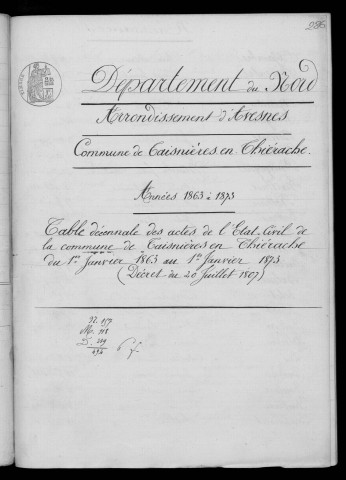 286
Département du Nord
Arrondissement d'Avesnes
Commune de Taisnières en Thiérache.
Années 1863 à 1873
Table décennale des actes de l'Etat-Civil de
la commune de Taisnières en Thiérache
du 1er Janvier 1863 au 1er Janvier 1873
(Décret du 20 Juillet 1807)
N. 157
M.
D.